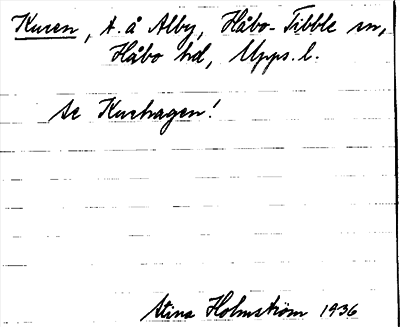 Kuren, t. å Alby, Håbo-Tibble sn,
Håbo hd, Upps. l.
se Kurhagen!
Stina Holmström 1936